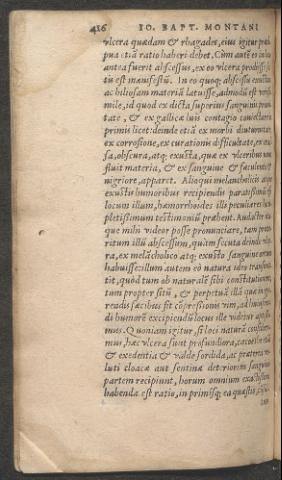 426 IO. BAPT. MONTANI
vlcera quædam & rhagades, eius igitur
pua etiã ratio haberi debet. Cùm autẽ eo in
antea fuerit abscessus, ex eo vlcera
tũ est manifestũ. In eo quoq; abscessu exustã
ac biliosam materiã latuisse, admodũ est
mile, id quod ex dicta superius sanguinis
tate, & ex gallicæ luis contagio coniectari
primis licet: deinde etiã ex morbi diuturnitate,
ex corrosione, ex curationis difficultate, ex
sa, obscura, atq; exusta, quæ ex vlceribus
fluit materia, & ex sanguine &
nigriore, apparet. Alioqui melancholicis
exustis humoribus recipiendis paratissimũ
locum illum, hæmorrhoides illi peculiares
pletissimum testimoniũ præbent. Audacter
que mihi videor posse pronunciare, tam
ritum illũ abscessum, quàm secuta deinde
ra, ex melãcholico atq; exusto sanguine
habuisse: illum autem eò natura ideo
tit, quòd tum ob naturalẽ sibi constitutionem,
tum propter sitũ, & perpetuã illã quæ in
reãdis fæcibus fit cõpressionis vim, ad
di humorẽ excipiendũ locus ille videtur
mus. Quoniam igitur, si loci naturã
mus, hæc vlcera sunt profundiora,
& exedentia & valde sordida, ac præterea
luti cloacæ aut sentinæ deteriorem sanguinis
partem recipiunt, horum omnium
habenda est ratio, in primisq; ea quæstio,